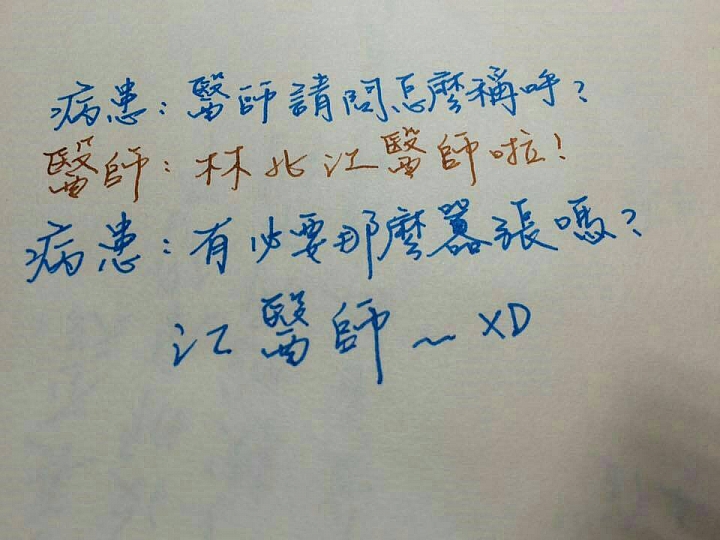 病患：醫師請問怎麼稱呼？
醫師：林北江醫師啦！
病患：有必要那麼囂張嗎？
江醫師～XD